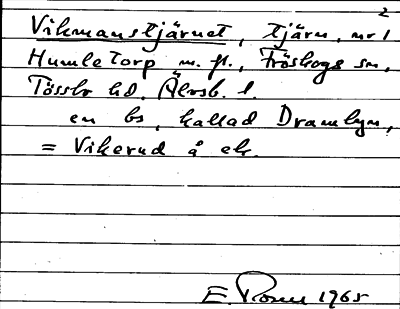 2
Vikmanstjärnet, tjärn, nr 1
Humletorp m. fl., Fröskogs sn,
Tössbo hd, Älvsb. l.
en bs, kallad Dramlyn,
= Vikerud å ek.
E. 1965